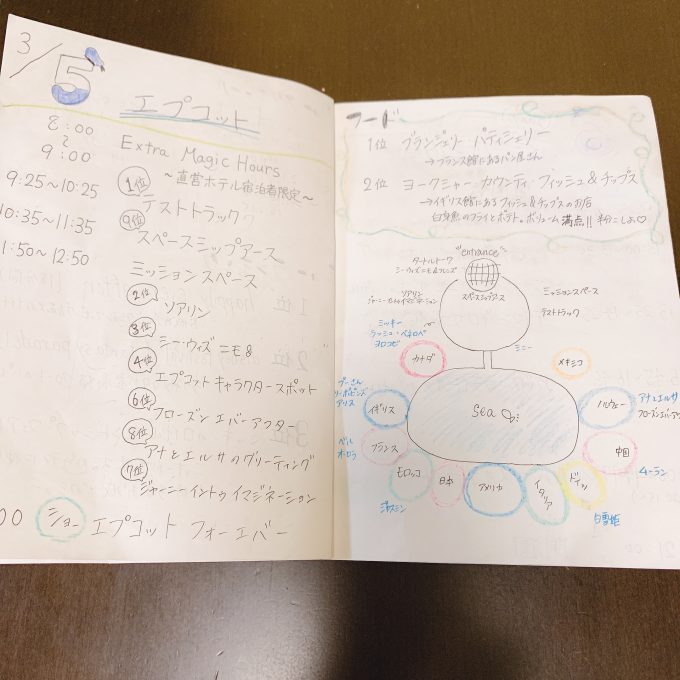 3/5
エプコット
8:00
〜
9:00
Extra Magic Hours
〜直営ホテル宿泊者限定〜
9:25〜10:25
1位
テストトラック
10:35〜11:35
9位
スペースシップアース
11:50〜12:50
ミッションスペース
2位
ソアリン
3位
シー・ウィズ ニモ&
4位
エプコット キャラクタースポット
6位
フローズン エバーアフター
8位
アナとエルサのグリーティング
7位
ジャーニーイントゥイマジネーション
00 ショー エプコット フォーエバー
フード
1位 ブランジェリー・パティシェリー
→フランス館にあるパン屋さん
2位 ヨークシャー・カウンティ・フィッシュ&チップス
→イギリス館にあるフィッシュ&チップスのお店
白身魚のフライとポテト。ボリューム満点!! 半分こしよ♡
"enhance"
タートルトーク
シーウィズニモ&フレンズ
ソアリン
スペースシップアース
ミッションスペース
テストトラック
ミッキー
ヨロコビ
ミニー
カナダ
メキシコ
プーさん
アリス
イギリス
Sea
ノルウェー
アナとエルサ
フローズンエバーアフ
ベル
オーロラ
フランス
中国
ムーラン
モロッコ
日本
アメリカ
イタリア
ドイツ
ジャスミン
白雪姫